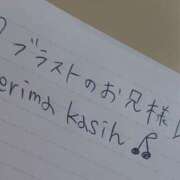 ブラストのお兄様
erima kasih